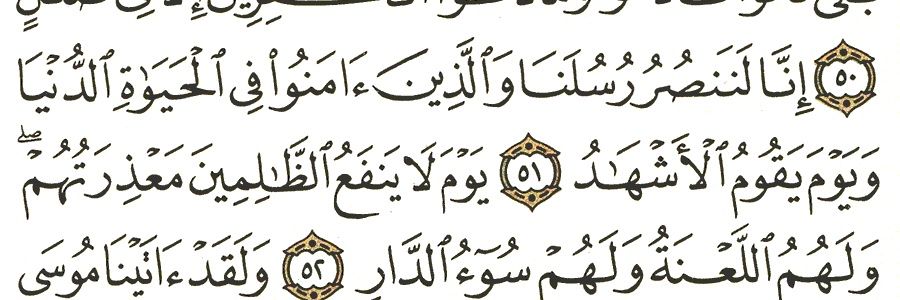 ۝٥٠ إِنَّا لَنَنصُرُ رُسُلَنَا وَٱلَّذِينَ ءَامَنُوا۟ فِى ٱلْحَيَوٰةِ ٱلدُّنْيَا
وَيَوْمَ يَقُومُ ٱلْأَشْهَـٰدُ ۝٥١ يَوْمَ لَا يَنفَعُ ٱلظَّـٰلِمِينَ مَعْذِرَتُهُمْ ۖ
وَلَهُمُ ٱللَّعْنَةُ وَلَهُمْ سُوٓءُ ٱلدَّارِ ۝٥٢ وَلَقَدْ ءَاتَيْنَا مُوسَى